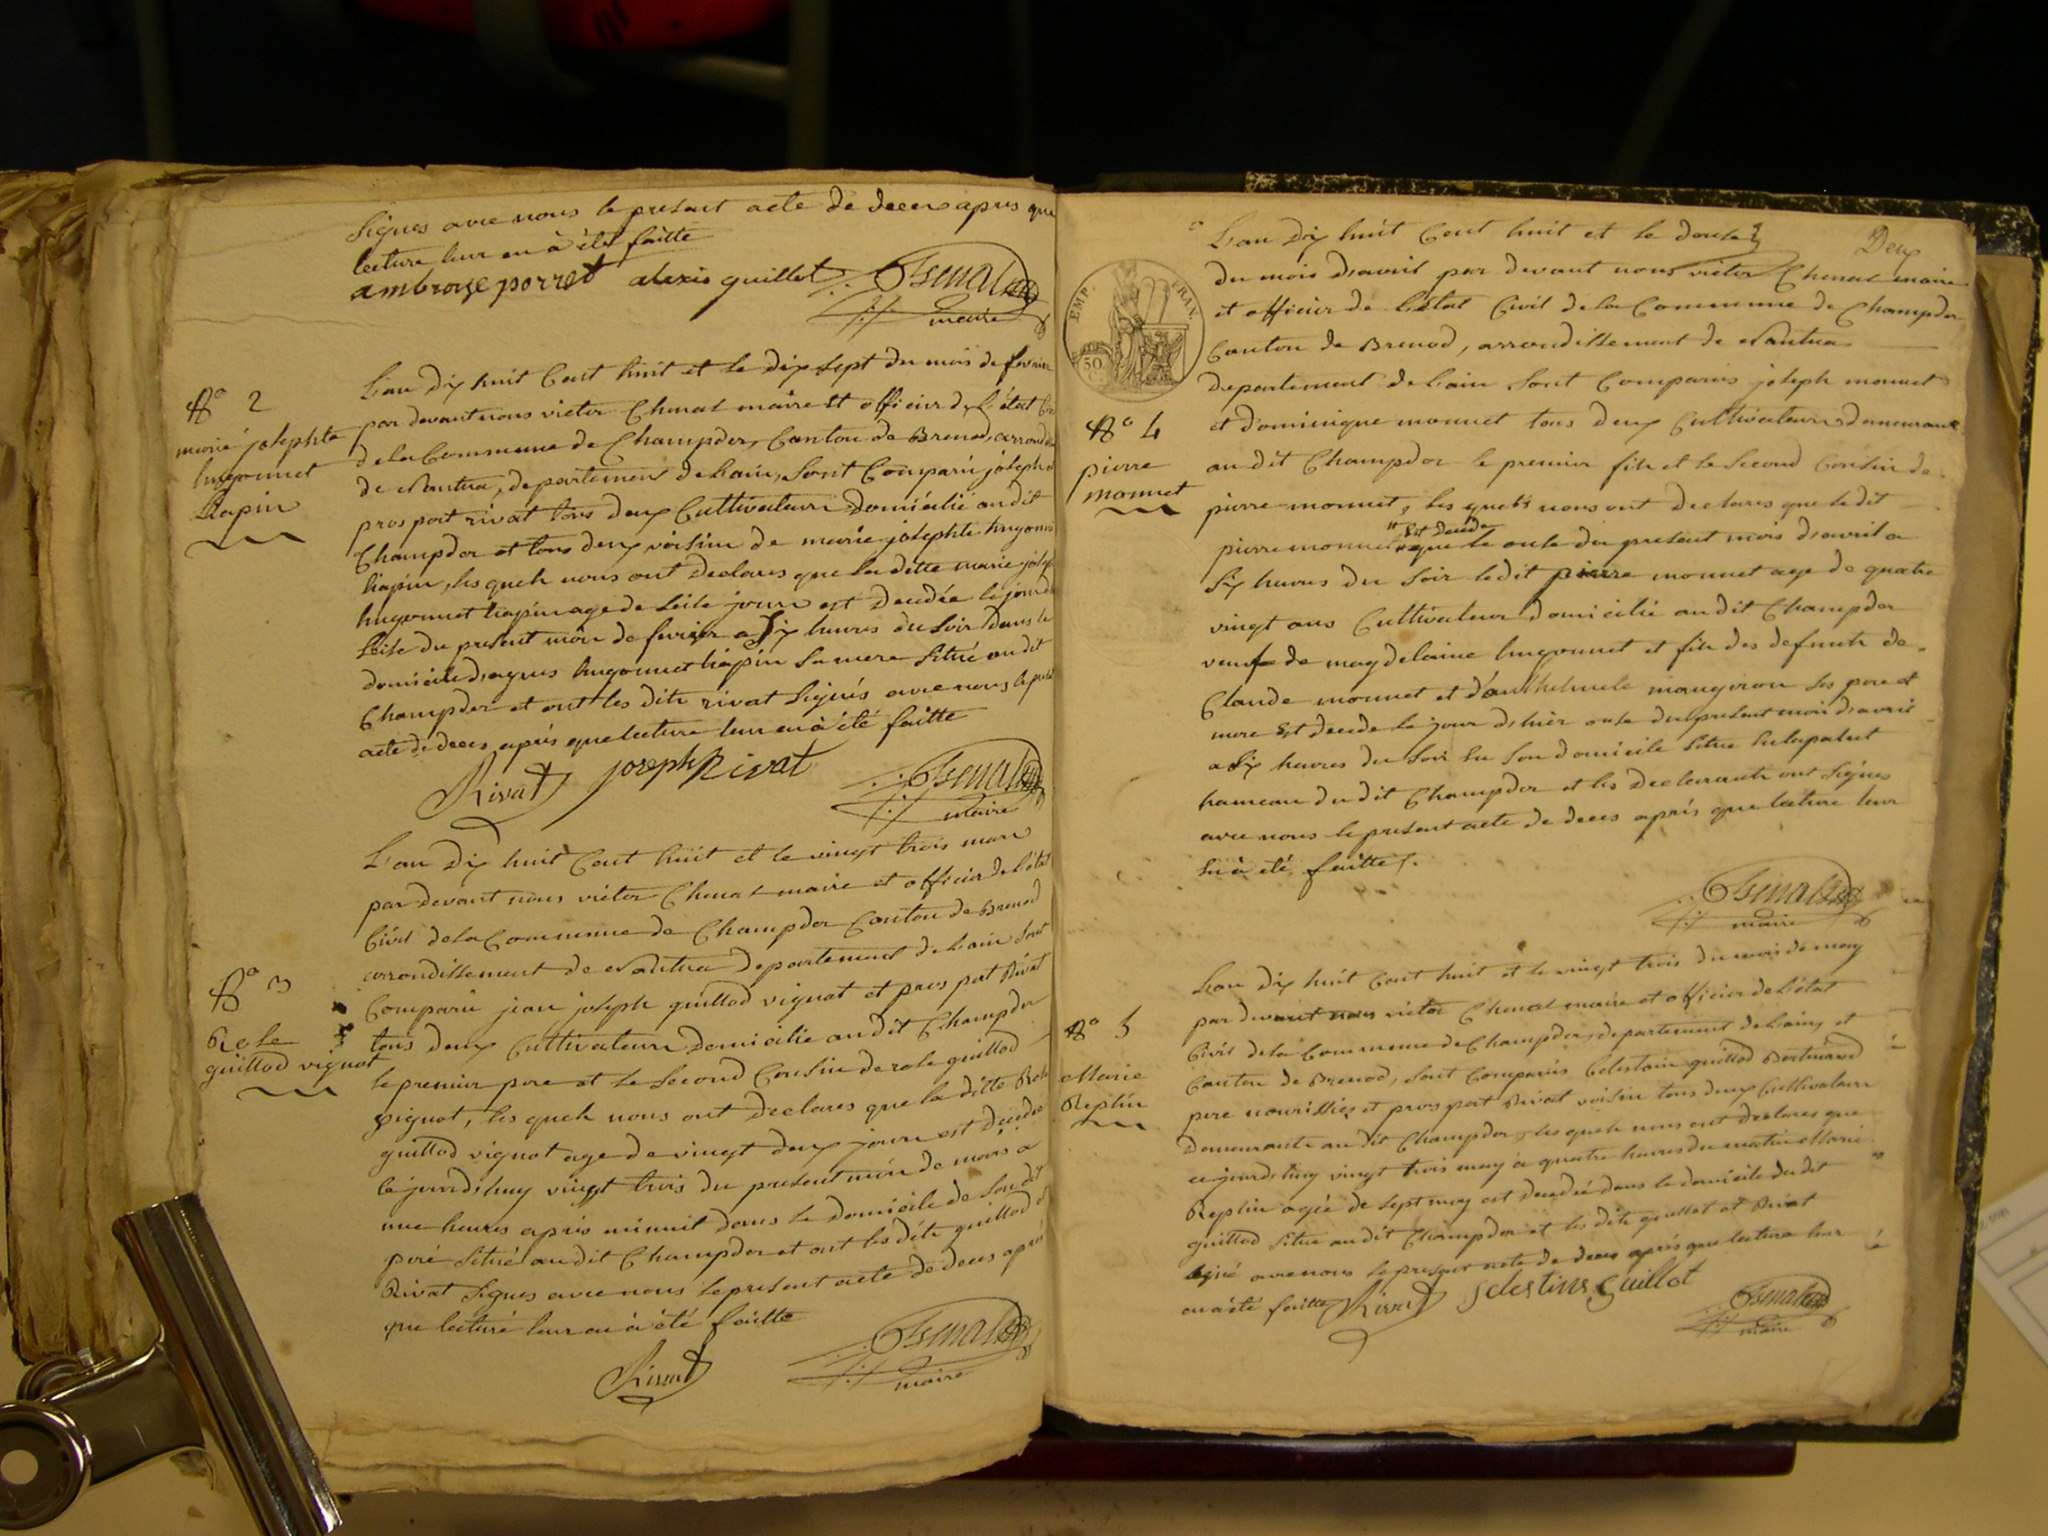 Signés avec nous le present acte de deces apres que
lecture leur en à été faitte
ambroise porret alexis guillet Chenal
maire
N° 2
marie josephte
hugonnet
Liapin
L'an dix huit Cent huit et le dix sept du mois de fevrier
par devant nous victor Chenal maire et officier de L'état Civ
de la Commune de Champdor, Canton de Brenod, arrond
de Nantua, departement de L'ain, sont Comparu joseph et
prosport rivat tous deux Cultivateurs Domicilié au dit
Champdor et tous deux voisins de marie josephte hugonn
liapin, les quels nous ont Declares que la ditte marie josep
hugonnet liapin age de seise jours est Decedée le jour d
seise du present mois de fevrier a Six heures du soir dans le
domicile d'agnes hugonnet liapin sa mere situé au dit
Champdor et ont les dits rivat signés avec nous le pres
acte de deces après que lecture leur en à été faitte
Rivat joseph Rivat Chenal
maire
N° 3
Rose
guillod vignot
L'an dix huit Cent huit et le vingt trois mars
par devant nous victor Chenal maire et officier de L'état
Civil de la Commune de Champdor Canton de Brenod
arrondissement de Nantua departement de L'ain sont
Comparu jean joseph guillod vignot et prosport Rivat
tous deux Cultivateurs Domicilié au dit Champdor
le premier pere et le second Cousin de rose guillod
vignot, les quels nous ont Declares que la ditte Rose
guillod vignot age de vingt deux jours est decedée
le jourd'huy vingt trois du present mois de mars à
une heures après minuit dans le domicile de son dit
peré situé au dit Champdor et ont les dits guillod et
Rivat signes avec nous le present acte de deces après
que lecture leur en à été faitte
Rivat Chenal
maire
Deux
EMP. FRAN.
50
L'an dix huit Cent huit et le douse
du mois d'avril par devant nous victor Chenal maire
et officier de L'état Civil de la Commune de Champdor
Canton de Brenod, arrondissement de Nantua
departement de L'ain sont Comparus joseph monnet
et dominique monnet tous deux Cultivateurs demeurant
N° 4
pierre
monnet
au dit Champdor le premier fils et le second Cousin de
pierre monnet, les quels nous ont declares que le dit
est decede
pierre monnet que le onse du present mois d'avril a
six heures du soir le dit pierre monnet age de quatre
vingt ans Cultivateur domicilié au dit Champdor
veufe de magdelaine hugonnet et fils des defunts de
Claude monnet et d'anthelmele maugiron ses pere et
mere est decede le jour d'hier onse du present mois d'avril
a six heures du soir en son domicile situe
hameau du dit Champdor et les declarants ont signes
avec nous le present acte de deces après que lecture leur
en à été faitte
Chenal
maire
N° 5
Marie
Replin
L'an dix huit Cent huit et le vingt trois du mois de may
par devant nous victor Chenal maire et officier de L'état
Civil de la Commune de Champdor, departement de L'ain, et
Canton de Brenod, sont Comparus Celestain guillod Bertinand
pere nourissier et prosport Rivat voisin tous deux Cultivateurs
Demeurants au dit Champdor, les quels nous ont declares que
cejourd'huy vingt trois may à quatre heures du matin Marie
Replin agée de sept moy est decedée dans le domicile du dit
guillod situe au dit Champdor et les dits guillot et Rivat
signé avec nous le present acte de deces après que lecture leur
en à été faitte Rivat Selestins guillot Chenal
maire